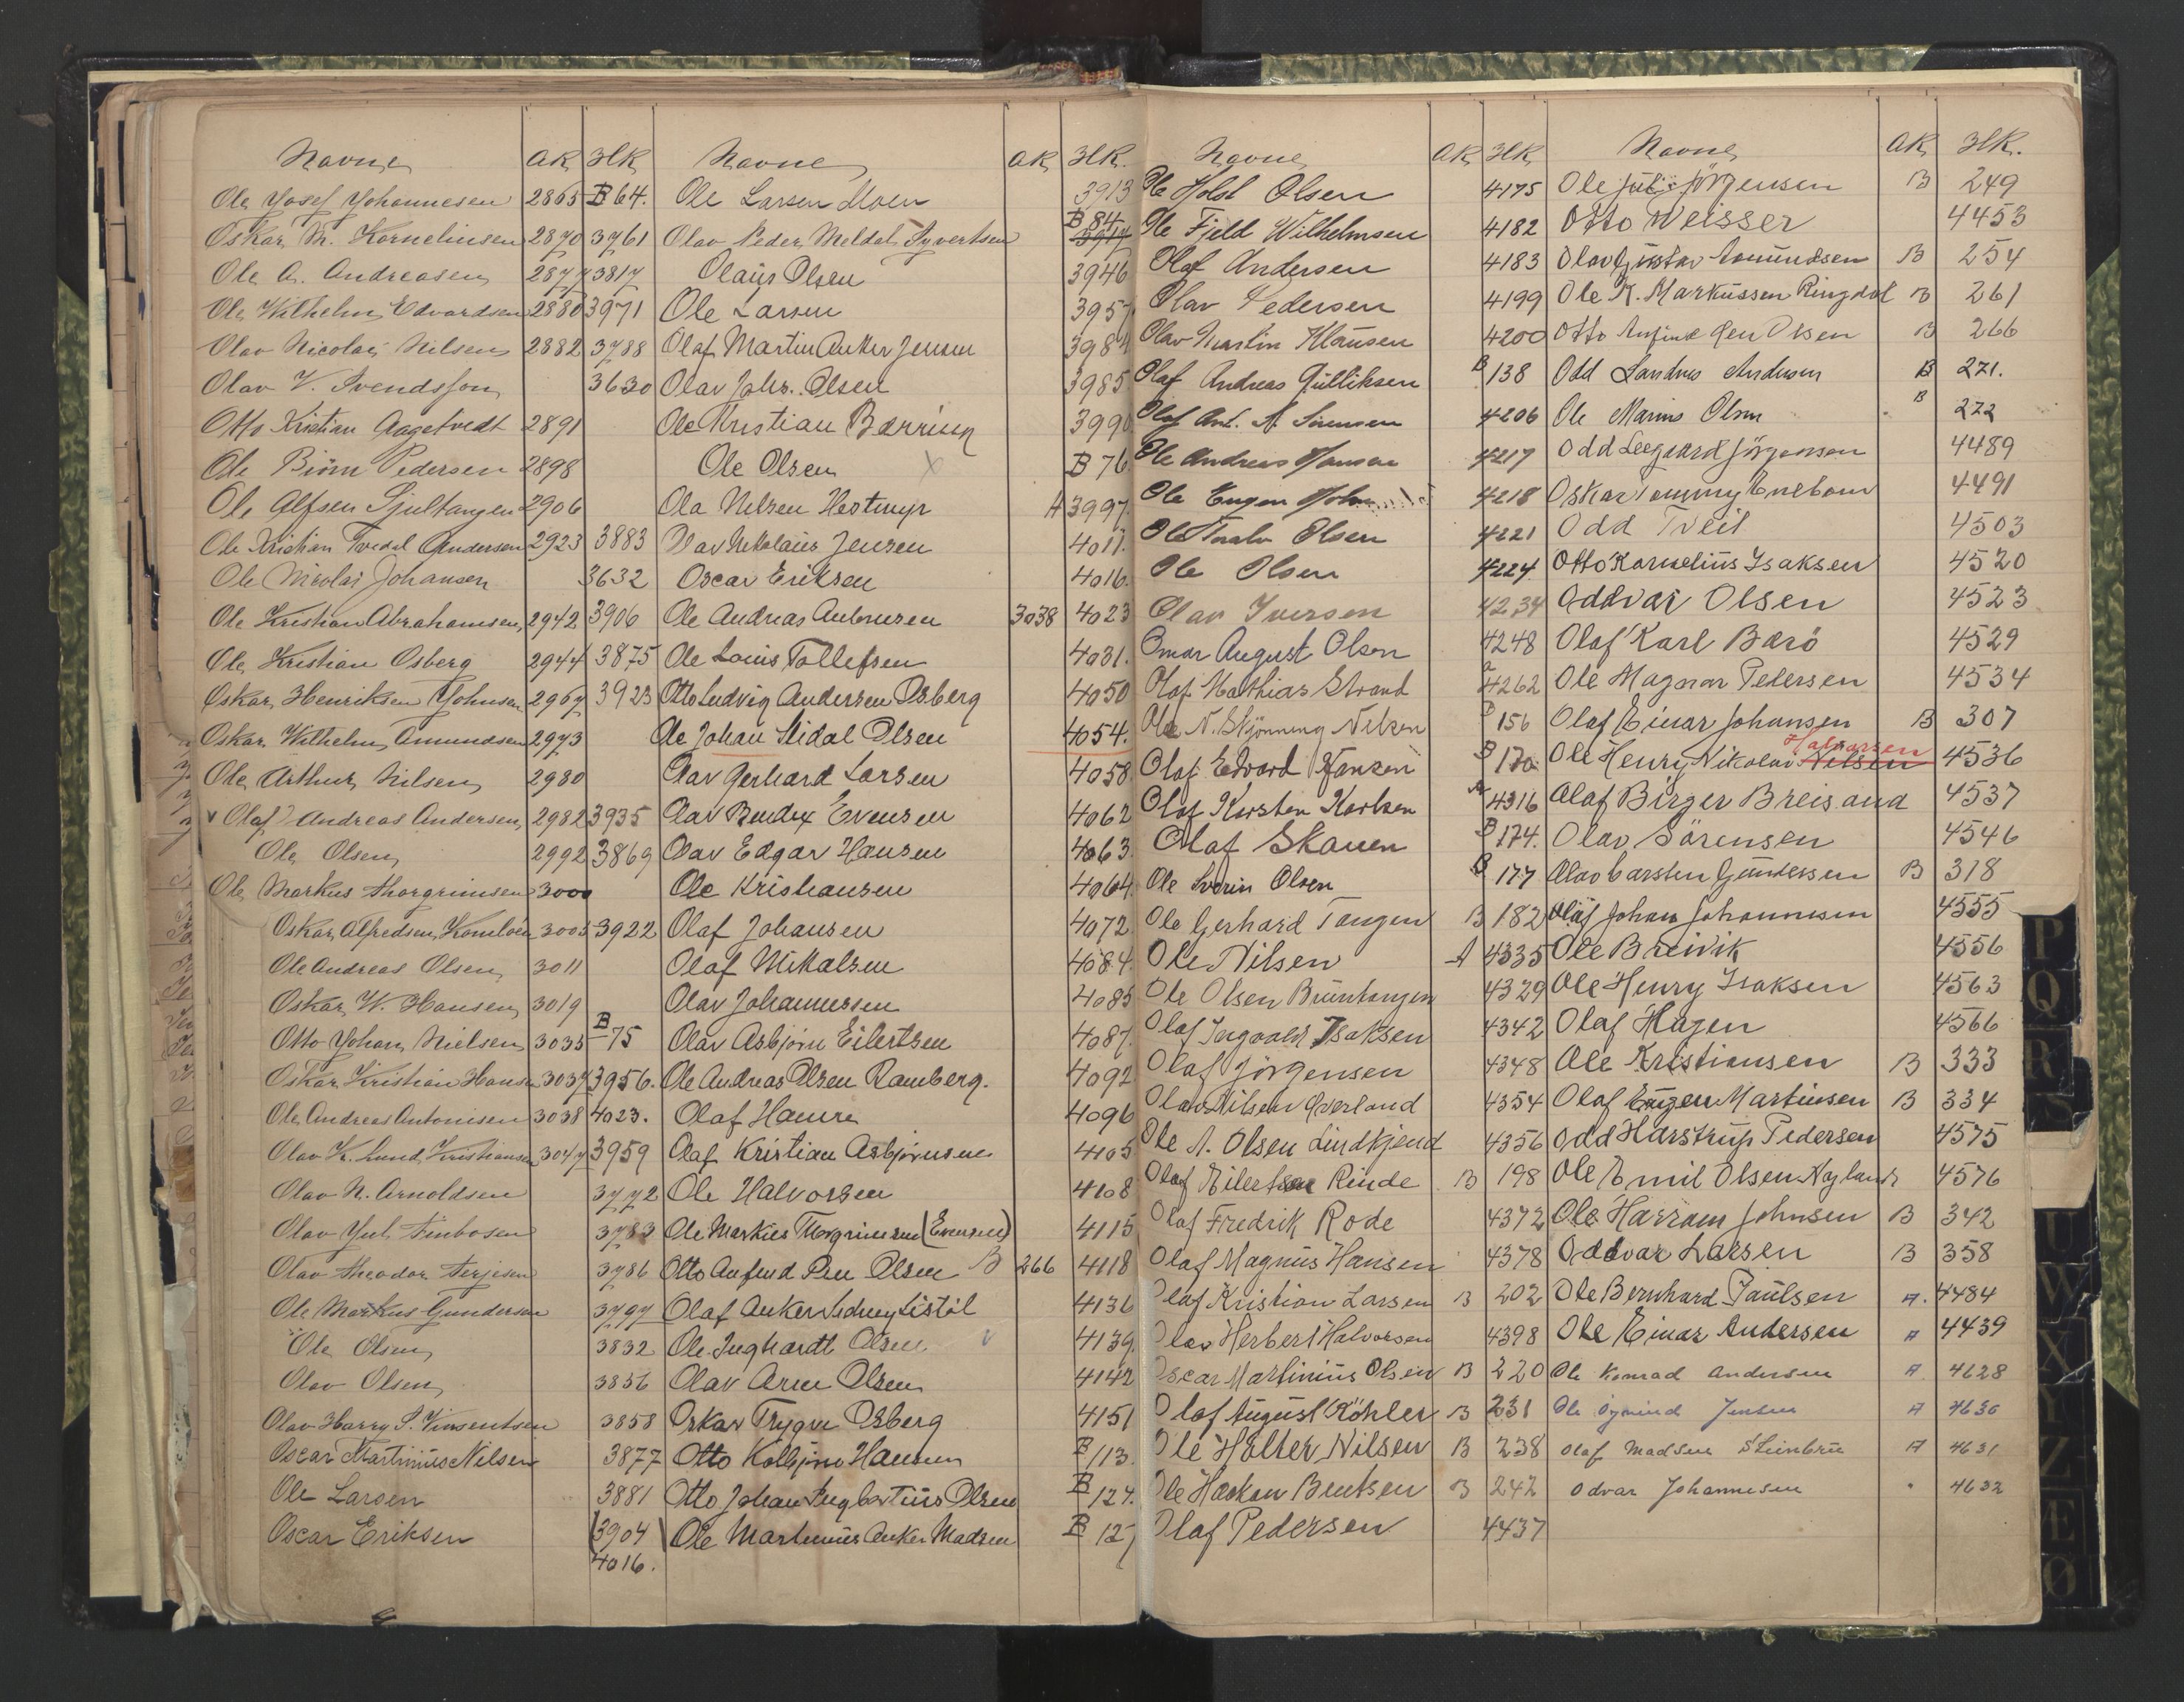 Navne AR HR
Ole Josef Johannesen 2865 B 64.
Oskar M. Kornelinsen 2870 3761
Ole A. Andreasen 2877 3817
Ole Wilhelm Edvardsen 2880 3971
Olav Nicolai Nilsen 2882 3788
Olav V. Svendsson 3630
Otto Kristian Aagetvedt 2891
Ole Biörn Pedersen 2898
Ole Alfsen Sjultangen 2906
Ole Kristian Tvedal Andersen 2923 3883
Ole Nicolai Johansen 3632
Ole Kristian Abrahamsen 2942 3906
Ole Kristian Osberg 2944 3875
Oskar Henriksen Johnsen 2967 3923
Oskar Wilhelm Amundsen 2973
Ole Arthur Nilsen 2980
v Olaf Andreas Andersen 2982 3935
Ole Olsen 2992 3869
Ole Markus Thorgrimsen 3000
Oskar Alfredsen 3005 3922
Ole Andreas Olsen 3011
Oskar W. Hansen 3019
Otto Johan Nielsen 3035 B 75
Oskar Kristian Hansen 3037 3956.
Ole Andreas Antonisen 3038 4023.
Olav K. Lund Kristiansen 3047 3959
Olav N. Arnoldsen 3772
Olav Jul. Finbosen 3783
Olav Theodor Terjesen 3786
Ole Markus Gundersen 3797
Ole Olsen 3832
Olav Olsen 3856
Olav Harry S. Vinsentsen 3858
Oscar Martinius Nilsen 3877
Ole Larsen 3881
Oscar Eriksen 3904
4016.
Navne AR HR.
Ole Larsen Moen 3913
Olav Peder Meldal Syvertsen B 84 3914
Olaus Olsen 3946
Ole Larsen 3957
Olaf Martin Anker Jensen 3984
Olav Johs. Olsen 3985
Ole Kristian Bærrisen 3990
Ole Olsen x B 76
Ola Nilsen Hestmyr A 3997
Olav Nikolaus Jensen 4011.
Oscar Eriksen 4016.
Ole Andreas Antonisen 3038 4023
Ole Louis Tollefsen 4031.
Otto Ludvig Andersen Osberg 4050
Ole Johan Midal Olsen 4054.
Olav Gerhard Larsen 4058
Olav Bendix Evensen 4062
Olav Edgar Hansen 4063.
Ole Kristiansen 4064.
Olaf Johansen 4072
Olaf Mikalsen 4084.
Olav Johannessen 4085
Olav Asbjørn Eilertsen 4087.
Ole Andreas Olsen Ramberg. 4092
Olaf Hamre 4096
Olaf Kristian Asbjørnsen 4105
Ole Halvorsen 4108
Ole Markus Thorgrimsen (Evensen) 4115
Otto Anfind Pen Olsen B 266 4118
Olaf Anker Sedney Listöl 4136
Ole Inghardt Olsen v 4139.
Olav Arne Olsen 4142
Oskar Trygve Osberg 4151
Otto Kolbjørn Hansen B 113.
Otto Johan Ingbertius Olsen B 124.
Ole Martinius Anker Madsen B 127
Navne AR HR
Ole Holst Olsen 4175
Ole Fjeld Wilhelmsen 4182
Olaf Andersen 4183
Olav Pedersen 4199
Olav Martin Klausen 4200
Olaf Andreas Gulliksen B 138
Olaf Ant. A. Sørensen 4206
Ole Andreas Hansen 4217
Ole Eugen 4218
Ole Toralv Olsen 4221
Ole Olsen 4224
Olav Iversen 4234
Omar August Olsen 4248
Olaf Mathias Strand 4262
Ole N. Skjönning Nelson B 156
Olaf Edvard Hansen B 170
Olaf Karsten Karlsen A 4316
Olaf Skauen B 174.
Ole Sverin Olsen B 177
Ole Gerhard Tangen B 182
Ole Nilsen A 4335
Ole Olsen Bruntangen 4329
Olaf Ingvald Isaksen 4342
Olaf Jörgensen 4348
Olav Nilsen Qverland 4354
Ole A. Olsen Lindkjend 4356
Olaf Eilertsen Rinde B 198
Olaf Fredrik Rode 4372
Olaf Magnus Hansen 4378
Olaf Kristian Larsen B 202
Olav Herbert Halvorsen 4398
Oscar Martinius Olsen B 220
Olaf August Köhler B 231
Ole Holter Nilsen B 238
Ole Haakon Bentsen B 242
Olaf Pedersen 4437
Navne AR HR.
Ole Juli Jörgensen B 249
Otto Weisser 4453
Olav Gustav Amundsen B 254
Ole K. Markussen Ringdal B 261
Otto Anfind Pen Olsen B 266
Odd Landus Andersen B 271.
Ole Marius Olsen B 272
Odd Leegaard Jörgensen 4489
Oskar Tommy Enebom 4491
Odd Tveit 4503
Otto Kornelius Isaksen 4520
Oddvar Olsen 4523
Olaf Karl Barö 4529
Ole Magnar Pedersen 4534
Olaf Einar Johansen B 307
Ole Henry Nikolai Nilsen Halvorsen 4536
Olaf Birger Breisand 4537
Olav Sörensen 4546
Olav Carsten Gundersen B 318
Olaf Johan Johannesen 4555
Ole Breivik 4556
Ole Henry Isaksen 4563
Olaf Hagen 4566
Ole Kristiansen B 333
Olaf Eugen Martinsen B 334
Odd Harstrup Pedersen 4575
Ole Emil Olsen Nyland 4576
Ole Harram Johnsen B 342
Oddvar Larsen B 358
Ole Bernhard Paulsen A. 4484
Ole Einar Andersen A 4439
Ole Konrad Andersen A 4628
Ole Öyvind Jensen A 4630
Olaf Madsen Steinbru A 4631
Odvar Johannesen 4632
P
Q
R
S
U
W
X
Y
Z
Æ
Ø